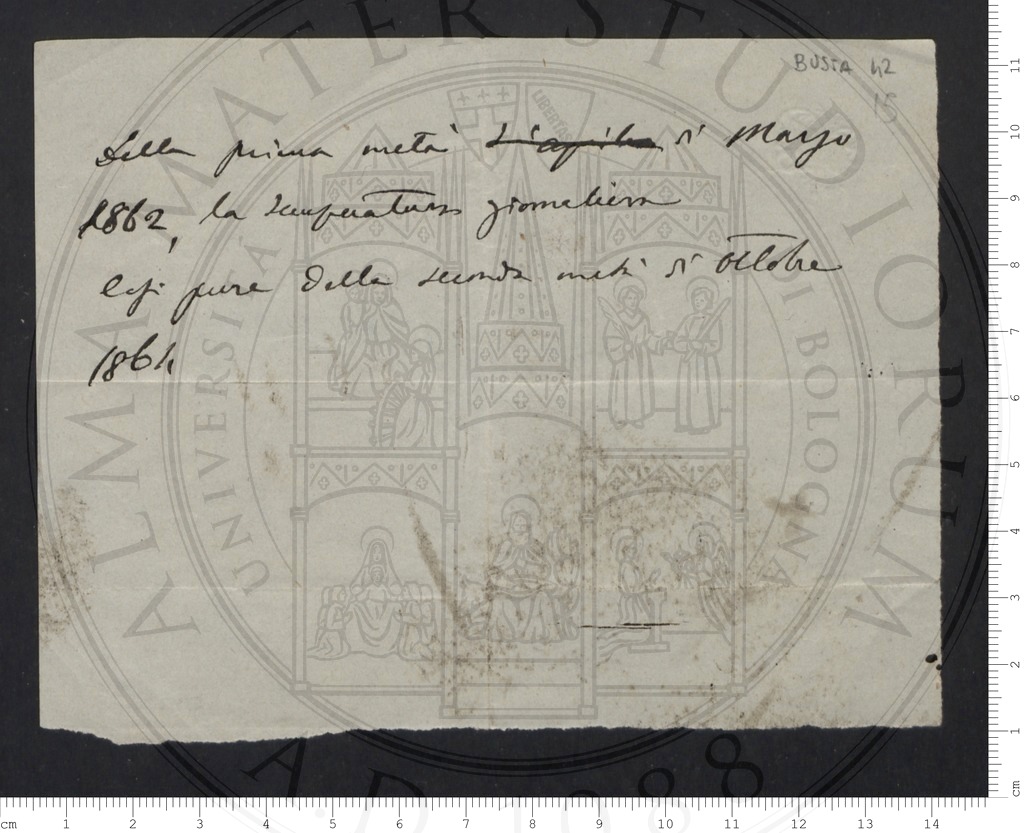 BUSTA 42
15
Della prima metà d'aprile di Marzo
1862, la temperatura giornaliera
Così pure della seconda metà di Ottobre
1864
ALMA MATER STUDIORUM
UNIVERSITÀ DI BOLOGNA
LIBERTAS
A.D. 1088
cm 1 2 3 4 5 6 7 8 9 10 11 12 13 14
cm 1 2 3 4 5 6 7 8 9 10 11